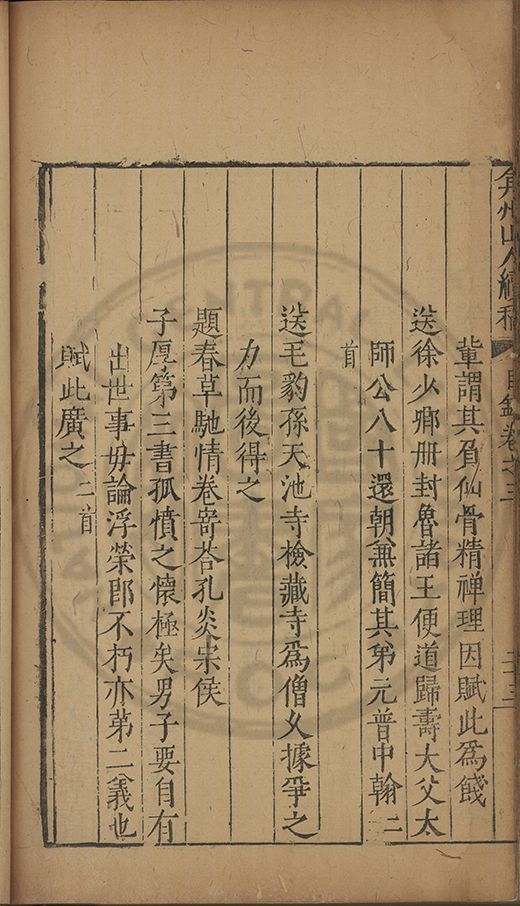 弇州山人續稿 目錄卷之三 二十三
輩謂其有仙骨精禪理因賦此爲餞
送徐少卿冊封魯諸王便道歸壽大父太
師公八十還朝兼簡其弟元普中翰二
首
送毛豹孫天池寺檢藏寺爲僧乆據爭之
力而後得之
題春草馳情卷寄荅孔炎宗侯
子厚第三書孤憤之懷極矣男子要自有
出世事毋論浮榮即不朽亦第二義也
賦此廣之二首